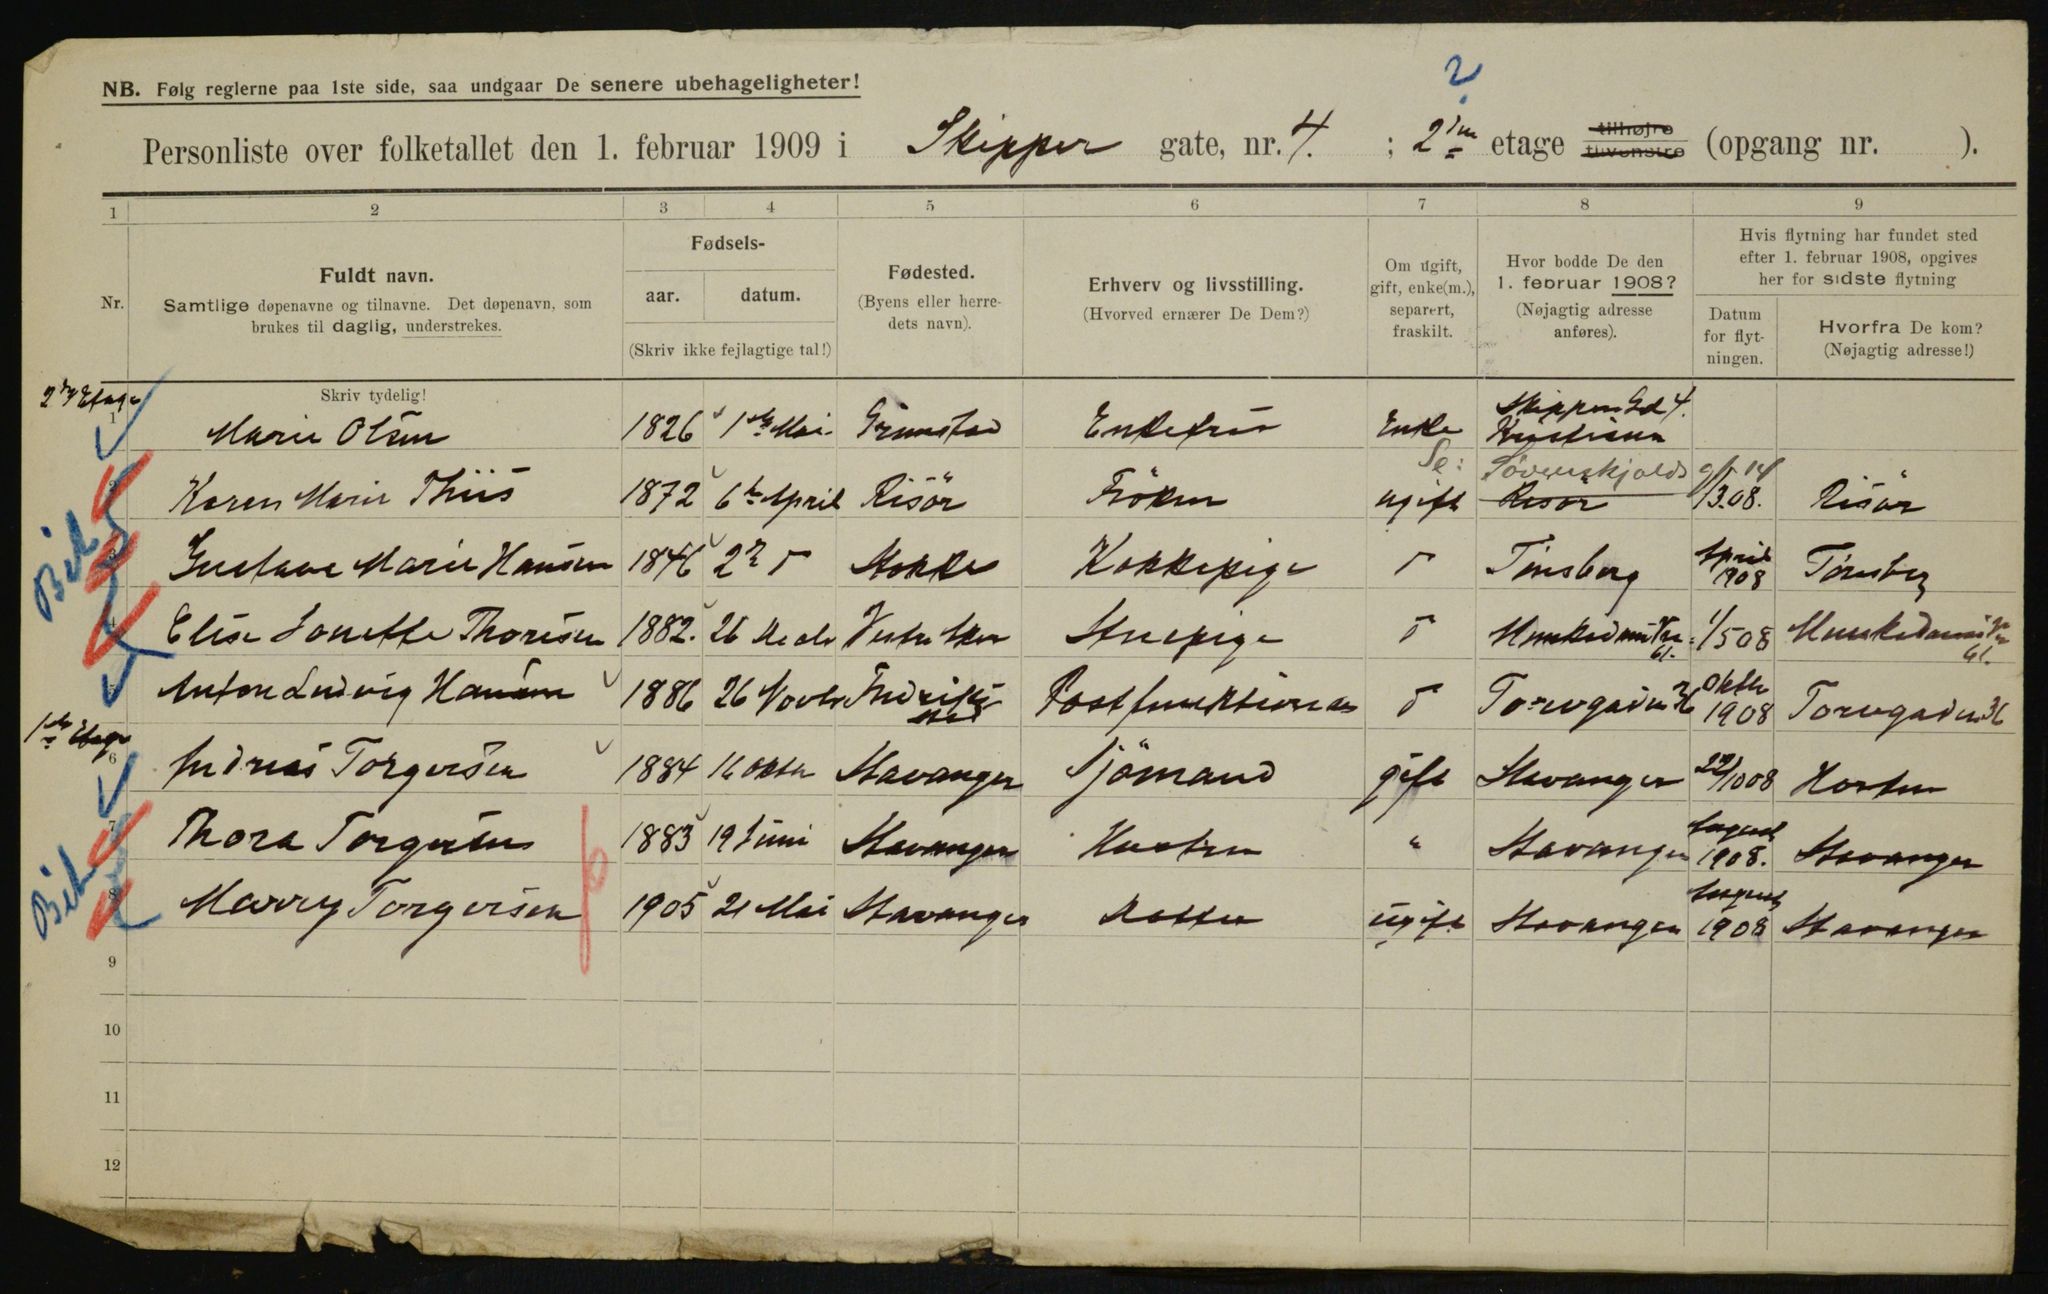 NB. Følg reglerne paa 1ste side, saa undgaar De senere ubehageligheter!
2
Personliste over folketallet den 1. februar 1909 i Skipper gate, nr. 4. ; 2den etage tilhøjre tilvenstre (opgang nr. ).
1 2 3 4 5 6 7 8 9
Nr.
Fuldt navn.
Samtlige døpenavne og tilnavne. Det døpenavn, som
brukes til daglig, understrekes.
Skriv tydelig!
Fødsels-
aar. datum.
(Skriv ikke fejlagtige tal!)
Fødested.
(Byens eller herre-
dets navn).
Erhverv og livsstilling.
(Hvorved ernærer De Dem?)
Om ugift,
gift, enke(m.),
separert,
fraskilt.
Hvor bodde De den
1. februar 1908?
(Nøjagtig adresse
anføres).
Hvis flytning har fundet sted
efter 1. februar 1908, opgives
her for sidste flytning
Datum
for flyt-
ningen.
Hvorfra De kom?
(Nøjagtig adresse!)
2den Etage
1 Marie Olsen 1826 1ste Mai Grimstad Enkefrue Enke Skipper Gd 4. Kristiania
2 Karen Marie Thiis 1872 6te April Risör Fröken ugift Risör /3.08. Risör
3 Gustava Marie Hansen 1846 2 Stokke Kokkepige Tönsberg April 1908 Tönsberg
4 Elise Lonette Thoresen 1882. 26 Decbr Stuepige 1/5 08
Bih
5 Anton Ludvig Hansen 1886 26 Novbr Fredrikstad Postfunktionær Torvgaden 36 Oktbr 1908 Torvgaden 36
1ste Etage
6 Andreas Torgersen 1884 16 Oktbr Stavanger Sjömand gift Stavanger 29/10 08 Horten
7 Thora Torgersen 1883 19 Juni Stavanger Hustru " Stavanger August 1908. Stavanger
8 Marry Torgersen 1905 21 Mai Stavanger Datter ugift Stavanger August 1908 Stavanger
Bih
9
10
11
12